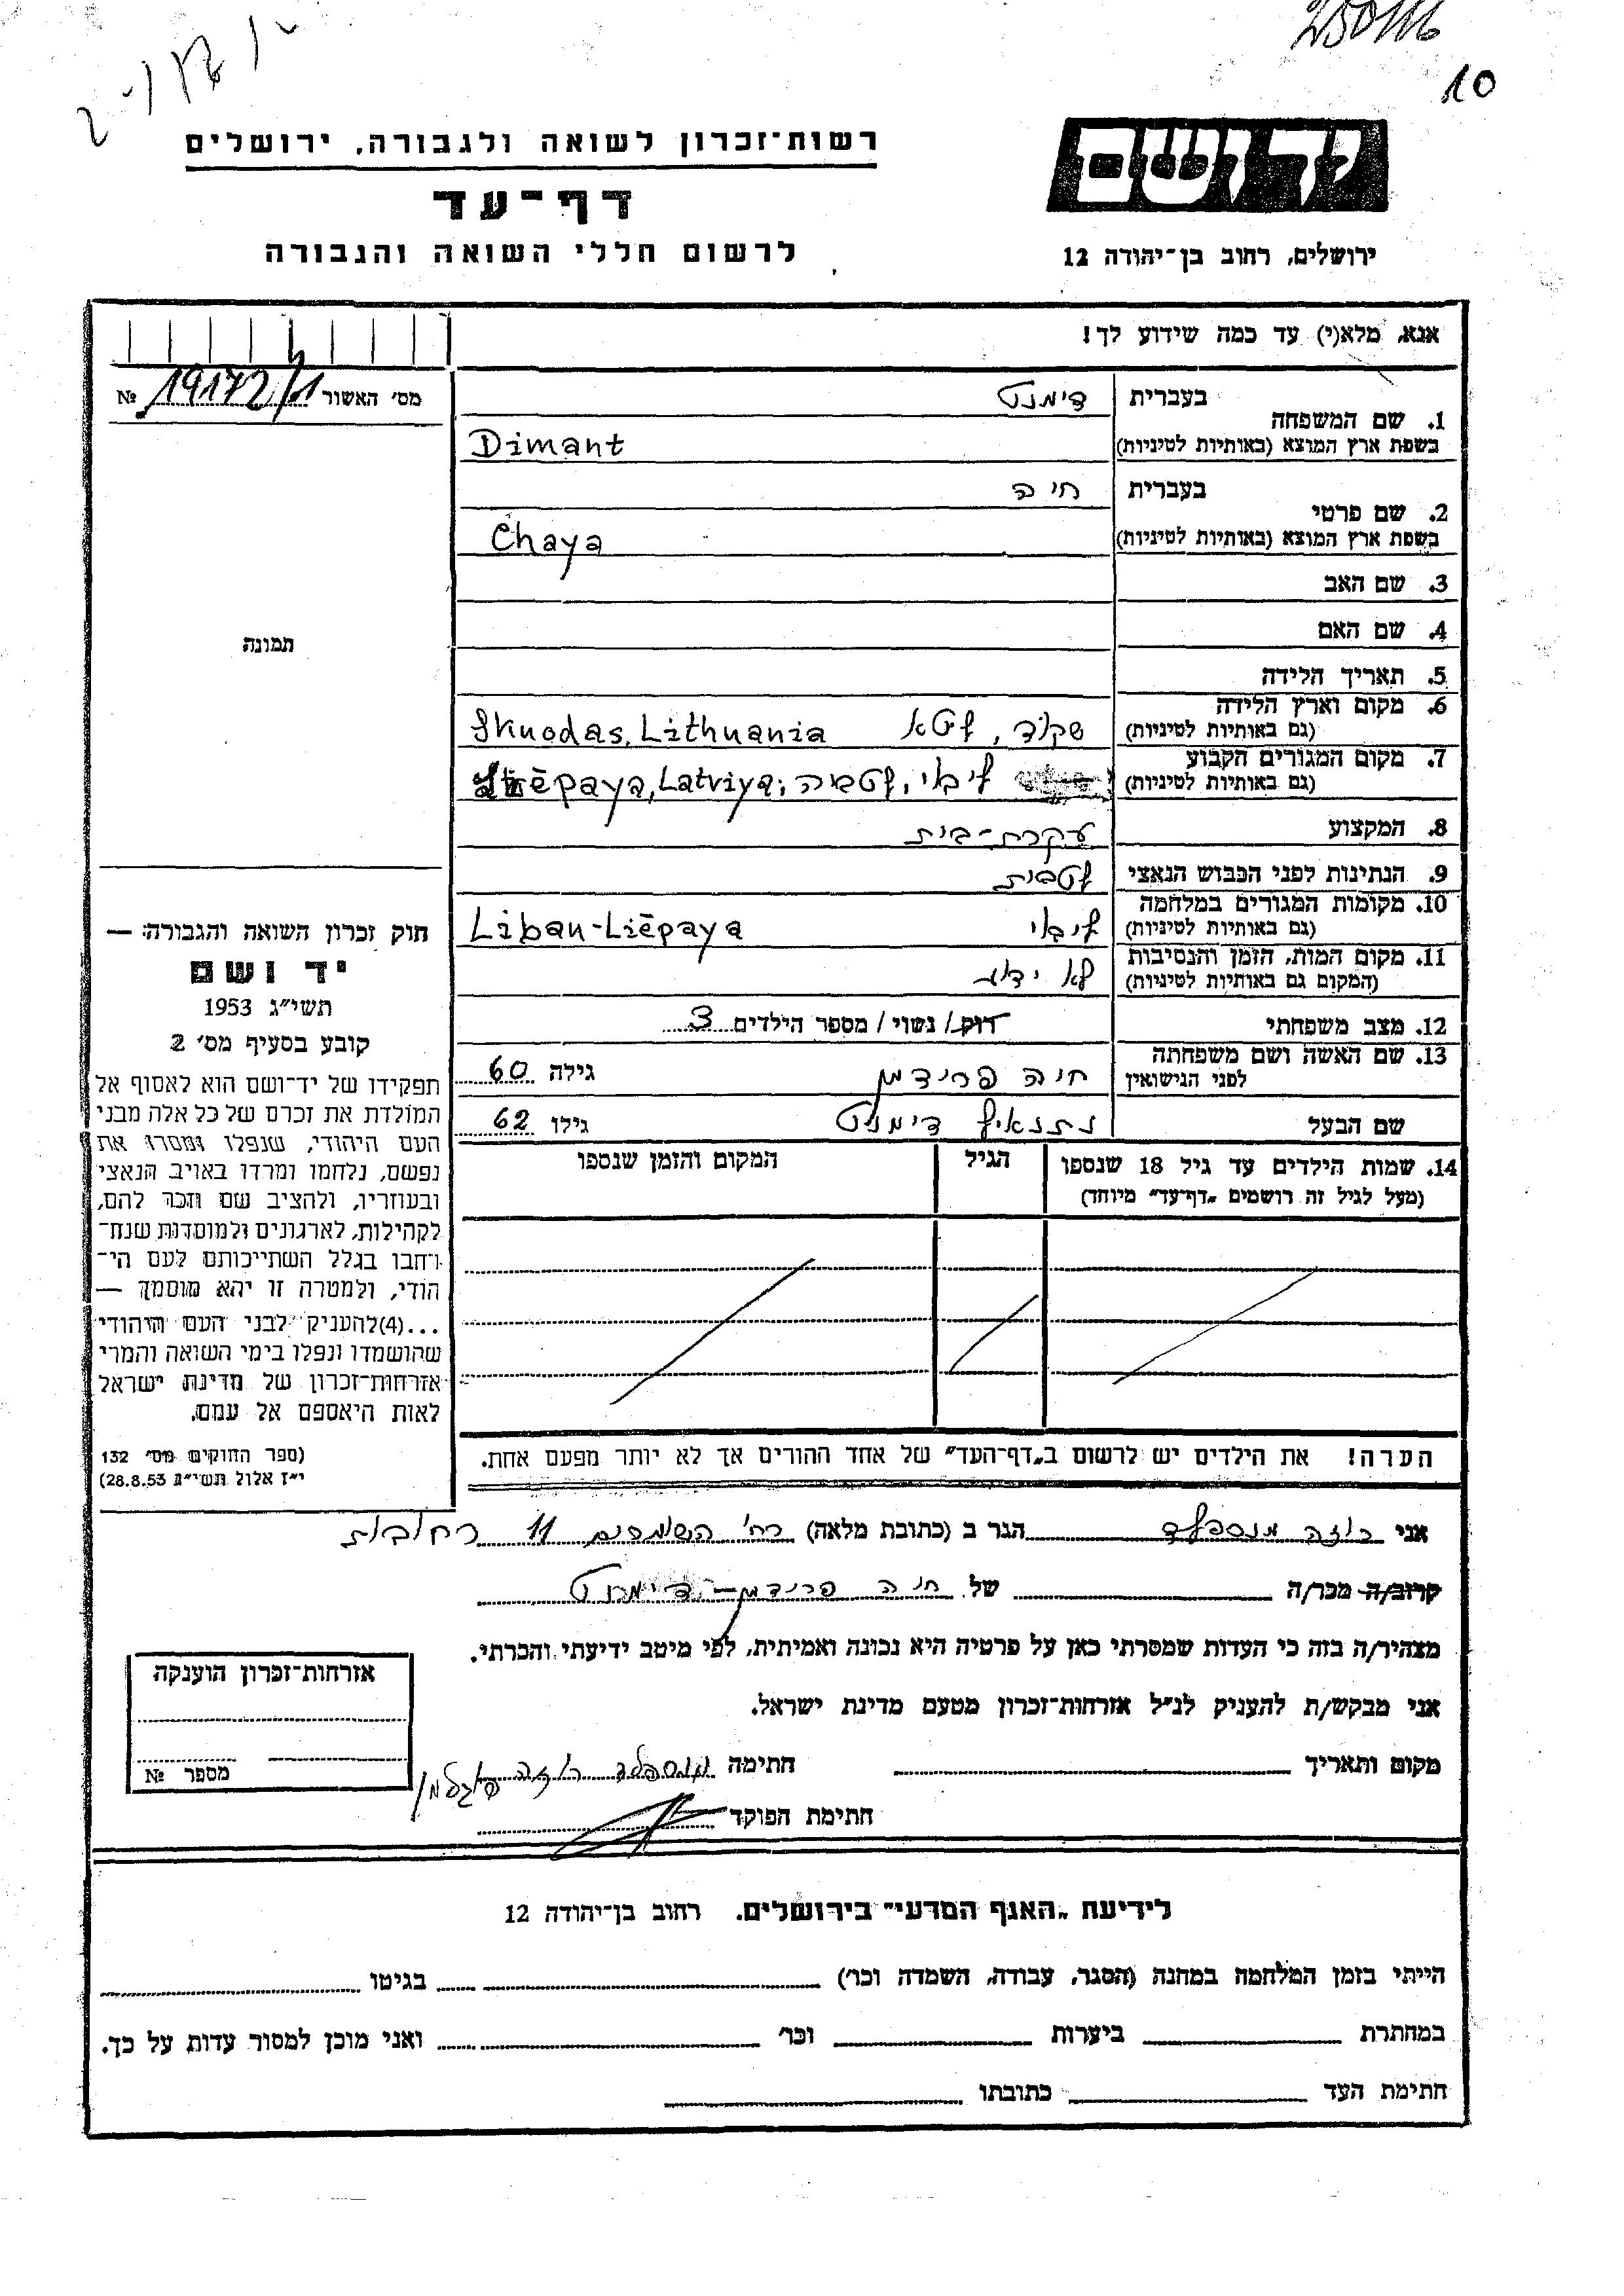 250116
10
רשות־זכרון לשואה ולגבורה, ירושלים
יד ושם
דף־עד
לרשום חללי השואה והגבורה
ירושלים, רחוב בן־יהודה 12
אנא, מלא(י) עד כמה שידוע לך!
מס׳ האשור 19172/1 №
1. שם המשפחה
בעברית דימנט
בשפת ארץ המוצא (באותיות לטיניות) Dimant
2. שם פרטי
בעברית חיה
בשפת ארץ המוצא (באותיות לטיניות) Chaya
3. שם האב
4. שם האם
תמונה
5. תאריך הלידה
6. מקום וארץ הלידה
(גם באותיות לטיניות) שקוד, ליטא Skuodas, Lithuania
7. מקום המגורים הקבוע
(גם באותיות לטיניות) ליבוי, לטביה; Liēpaya, Latviya
8. המקצוע עקרת-בית
9. הנתינות לפני הכבוש הנאצי לטבית
10. מקומות המגורים במלחמה
(גם באותיות לטיניות) ליבוי Liban-Liēpaya
11. מקום המות, הזמן והנסיבות
(המקום גם באותיות לטיניות) לא ידוע
12. מצב משפחתי רוק/ נשוי/ מספר הילדים 3
13. שם האשה ושם משפחתה
לפני הנישואין חיה פרידמן גילה 60
שם הבעל נתנאל דימנט גילו 62
14. שמות הילדים עד גיל 18 שנספו הגיל המקום והזמן שנספו
(מעל לגיל זה רושמים „דף־עד״ מיוחד)
הערה! את הילדים יש לרשום ב„דף־העד״ של אחד ההורים אך לא יותר מפעם אחת.
חוק זכרון השואה והגבורה: —
יד ושם
תשי״ג 1953
קובע בסעיף מס׳ 2
תפקידו של יד־ושם הוא לאסוף אל
המולדת את זכרם של כל אלה מבני
העם היהודי, שנפלו ומסרו את
נפשם, נלחמו ומרדו באויב הנאצי
ובעוזריו, ולהציב שם וזכר להם,
לקהילות, לארגונים ולמוסדות שנח־
רבו בגלל השתייכותם לעם הי־
הודי, ולמטרה זו יהא מוסמך —
...(4) להעניק לבני העם היהודי
שהושמדו ונפלו בימי השואה והמרי
אזרחות־זכרון של מדינת ישראל
לאות היאספם אל עמם.
(ספר החוקים מס׳ 132
י״ז אלול תשי״ג 28.8.53)
אני רוזה מנספלד הגר ב (כתובת מלאה) רח׳ השומרים 11 רחובות
קרוב/ה מכר/ה של חיה פרידמן-דימנט
מצהיר/ה בזה כי העדות שמסרתי כאן על פרטיה היא נכונה ואמיתית, לפי מיטב ידיעתי והכרתי.
אני מבקש/ת להעניק לנ״ל אזרחות־זכרון מטעם מדינת ישראל.
מקום ותאריך חתימה מנספלד רוזה
חתימת הפוקד
אזרחות־זכרון הוענקה
מספר №
לידיעת „האגף המדעי״ בירושלים. רחוב בן־יהודה 12
הייתי בזמן המלחמה במחנה (הסגר, עבודה, השמדה וכר׳) בגיטו
במחתרת ביערות וכר׳ ואני מוכן למסור עדות על כך.
חתימת העד כתובתו